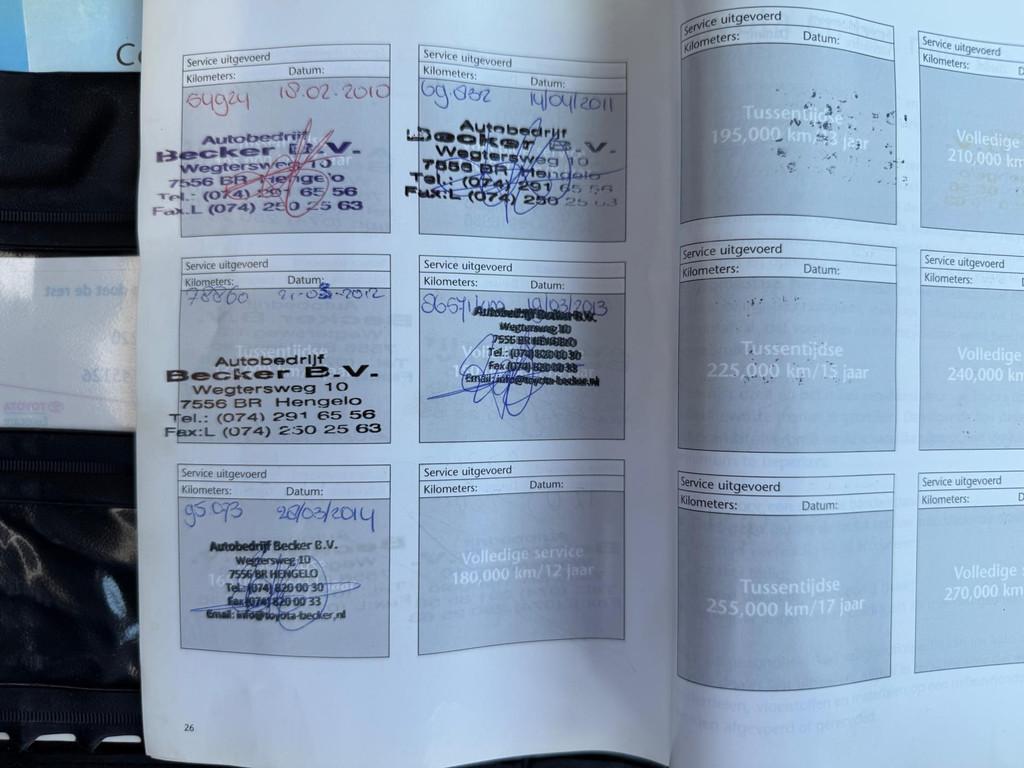 Service uitgevoerd
Kilometers: Datum:
64924 18.02.2010
Autobedrijf
Becker B.V.
Wegtersweg 10
7556 BR Hengelo
Tel.: (074) 291 65 56
Fax:L (074) 250 25 63
Service uitgevoerd
Kilometers: Datum:
69.832 14/04/2011
Autobedrijf
Becker B.V.
Wegtersweg 10
7556 BR Hengelo
Tel.: (074) 291 65 56
Fax:L (074) 250 25 63
Service uitgevoerd
Kilometers: Datum:
78860 2012
Tussentijdse
Autobedrijf
Becker B.V.
Wegtersweg 10
7556 BR Hengelo
Tel.: (074) 291 65 56
Fax:L (074) 250 25 63
Service uitgevoerd
Kilometers: Datum:
86571 km 19/03/2013
Autobedrijf Becker B.V.
Wegtersweg 10
7556 BR HENGELO
Tel.: (074) 820 00 30
Fax (074) 820 00 33
Email: info@toyota-becker.nl
Service uitgevoerd
Kilometers: Datum:
95073 28/03/2014
Autobedrijf Becker B.V.
Wegtersweg 10
7556 BR HENGELO
Tel.: (074) 820 00 30
Fax (074) 820 00 33
Email: info@toyota-becker.nl
Service uitgevoerd
Kilometers: Datum:
Volledige service
180,000 km/12 jaar
26
Service uitgevoerd
Kilometers: Datum:
Tussentijdse
195,000 km/13 jaar
Service uitgevoerd
Kilometers: D
Volledige
210,000 km
Service uitgevoerd
Kilometers: Datum:
Tussentijdse
225,000 km/15 jaar
Service uitgevoerd
Kilometers: D
Volledige
240,000 km
Service uitgevoerd
Kilometers: Datum:
Tussentijdse
255,000 km/17 jaar
Service uitgevoerd
Kilometers: D
Volledige s
270,000 km